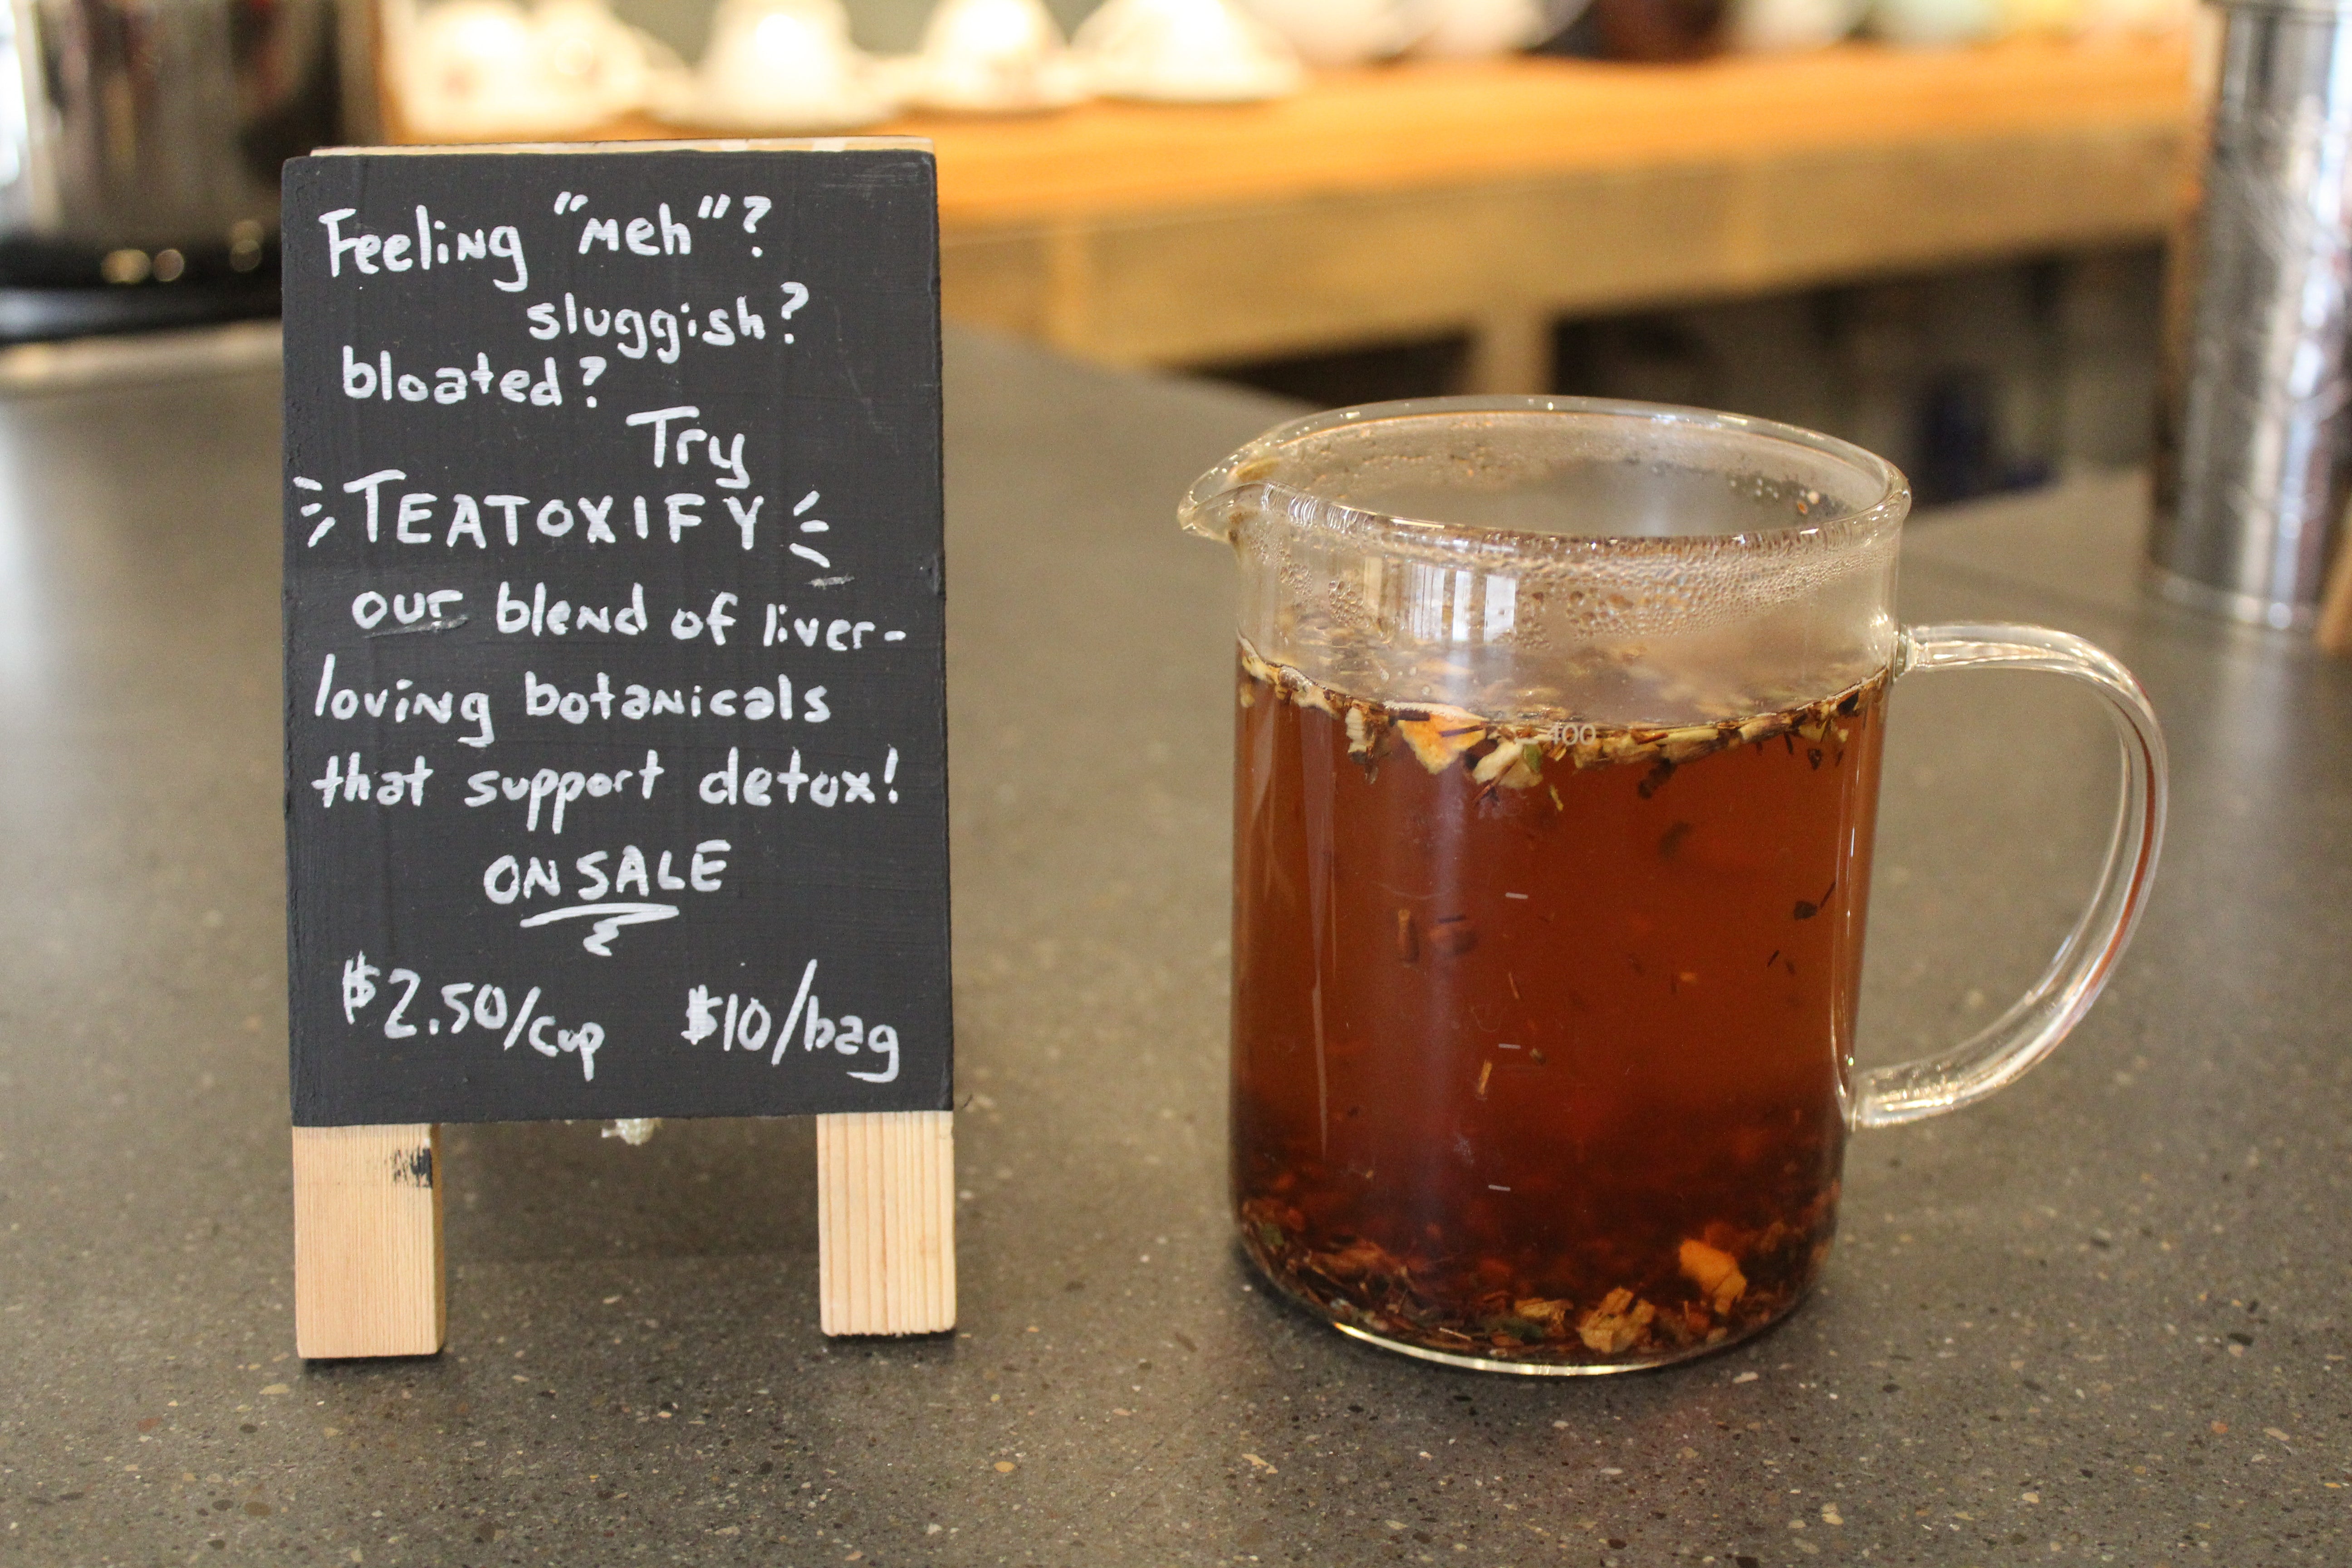 Feeling "meh"?
sluggish?
bloated?
Try
TEATOXIFY
our blend of liver-
loving botanicals
that support detox!
ON SALE
$2.50/cup $10/bag
400